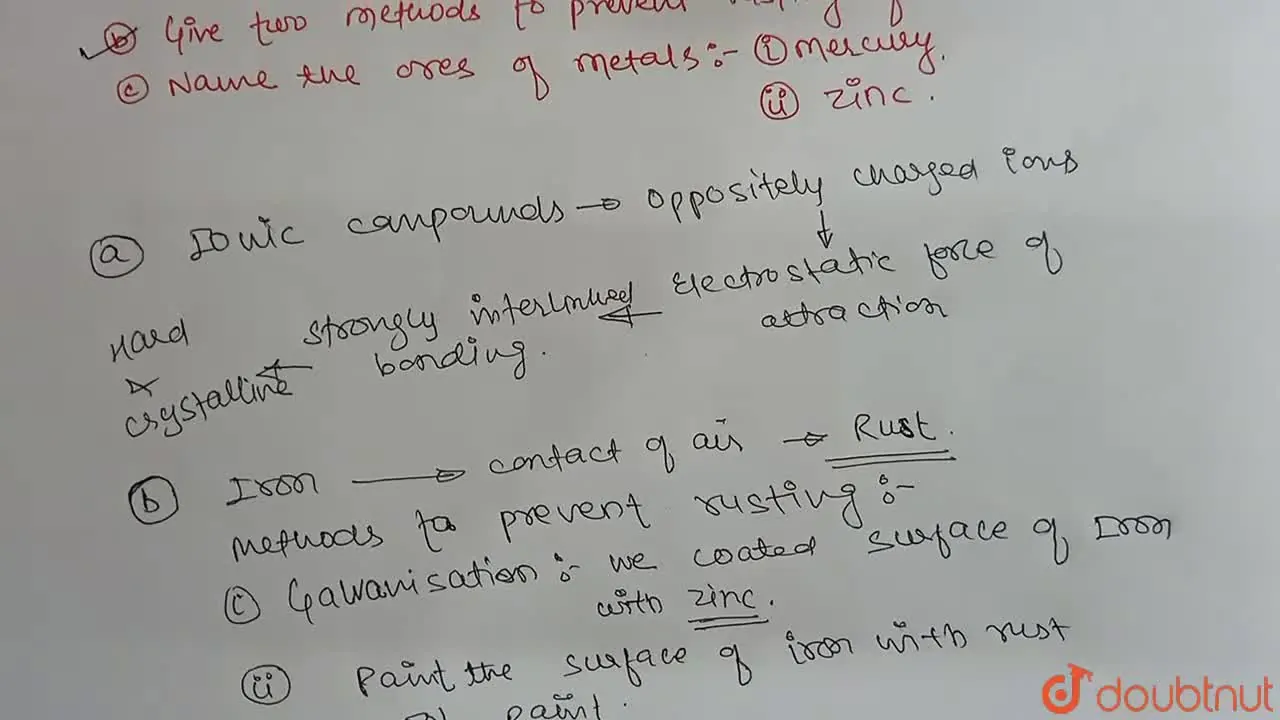 (b) Give two methods to prevent
(c) Name the ores of metals :- (i) mercury.
(ii) zinc.
(a) Ionic compounds → oppositely charged ions
↓
Hard strongly interlinked ← Electrostatic force of
& ← bonding. attraction
crystalline
(b) Iron → contact of air → Rust.
methods to prevent rusting :-
(i) Galvanisation :- we coated surface of Iron
with zinc.
(ii) Paint the surface of iron with rust
paint.
doubtnut